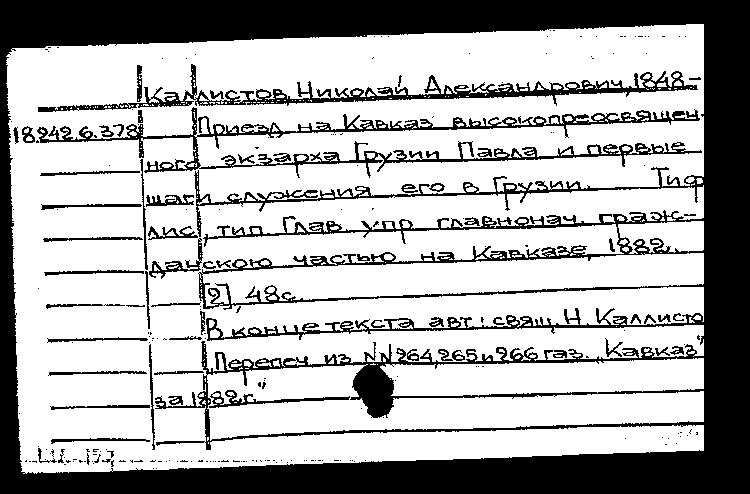 Каллистов, Николай Александрович, 1848-
18.242.6.378 Приезд на Кавказ высокопреосвящен-
ного экзарха Грузии Павла и первые
шаги служения его в Грузии. Тиф
лис, тип Глав упр главнонач. граж-
данскою частью на Кавказе, 1882.
[2], 48с.
В конце текста авт: свящ. Н. Каллисто
„Перепеч из NN264,265 и 266 газ. „Кавказ"
за 1882г."